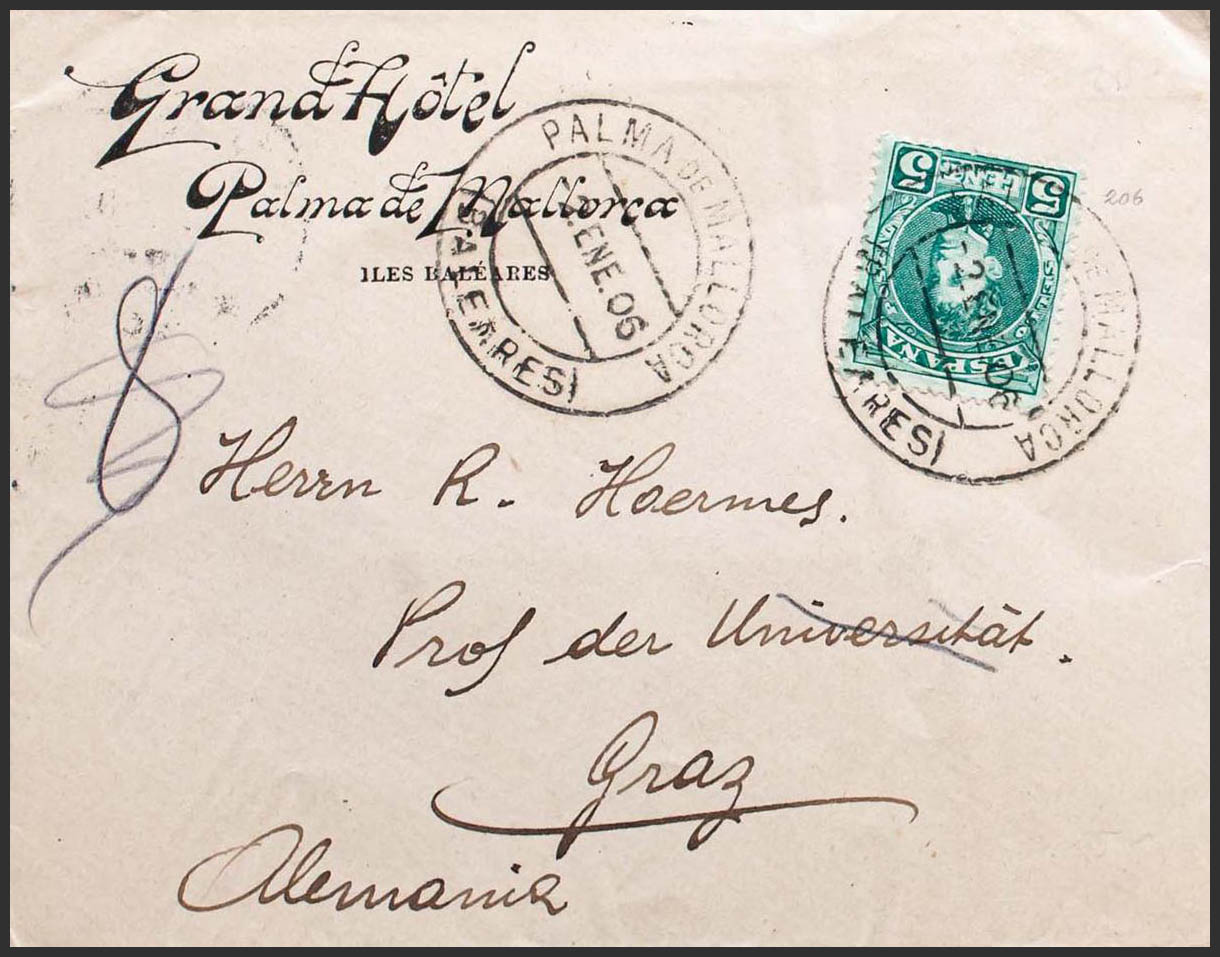 Grand Hôtel
Palma de Mallorca
ILES BALÉARES
PALMA DE MALLORCA
2 ENE.06
(BALEARES)
5 5
CENTS
ESPAÑA
DE MALLORCA
206
Herrn R. Hoermes.
Prof der Universität.
Graz
Alemania